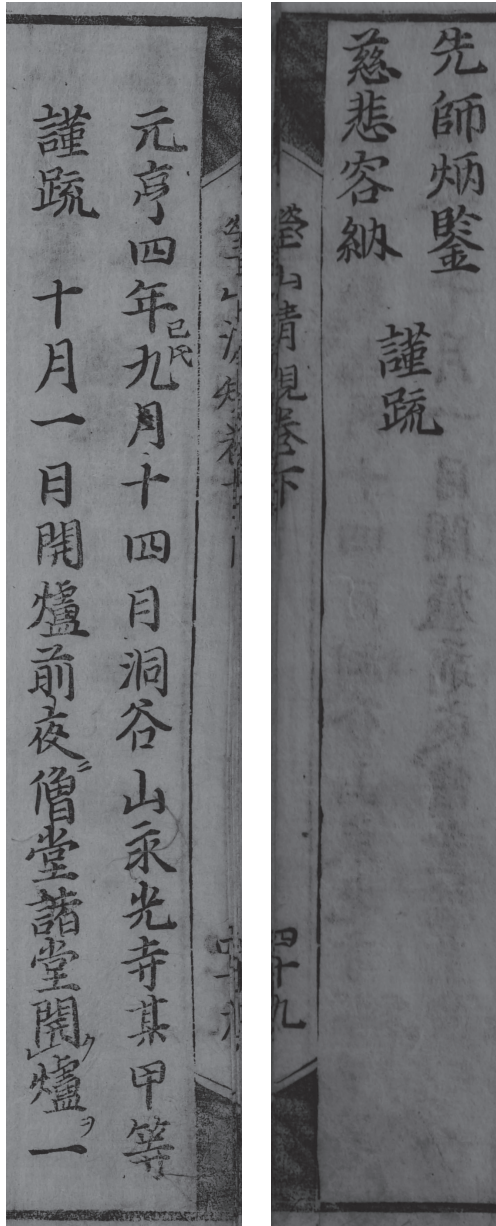 先師炳鑒
慈悲容納
謹疏
瑩山清規卷下
四十九
元亨四年九月十四日洞谷山永光寺某甲等
謹疏　十月一日開爐前夜ニ僧堂諸堂開ク爐ヲ一